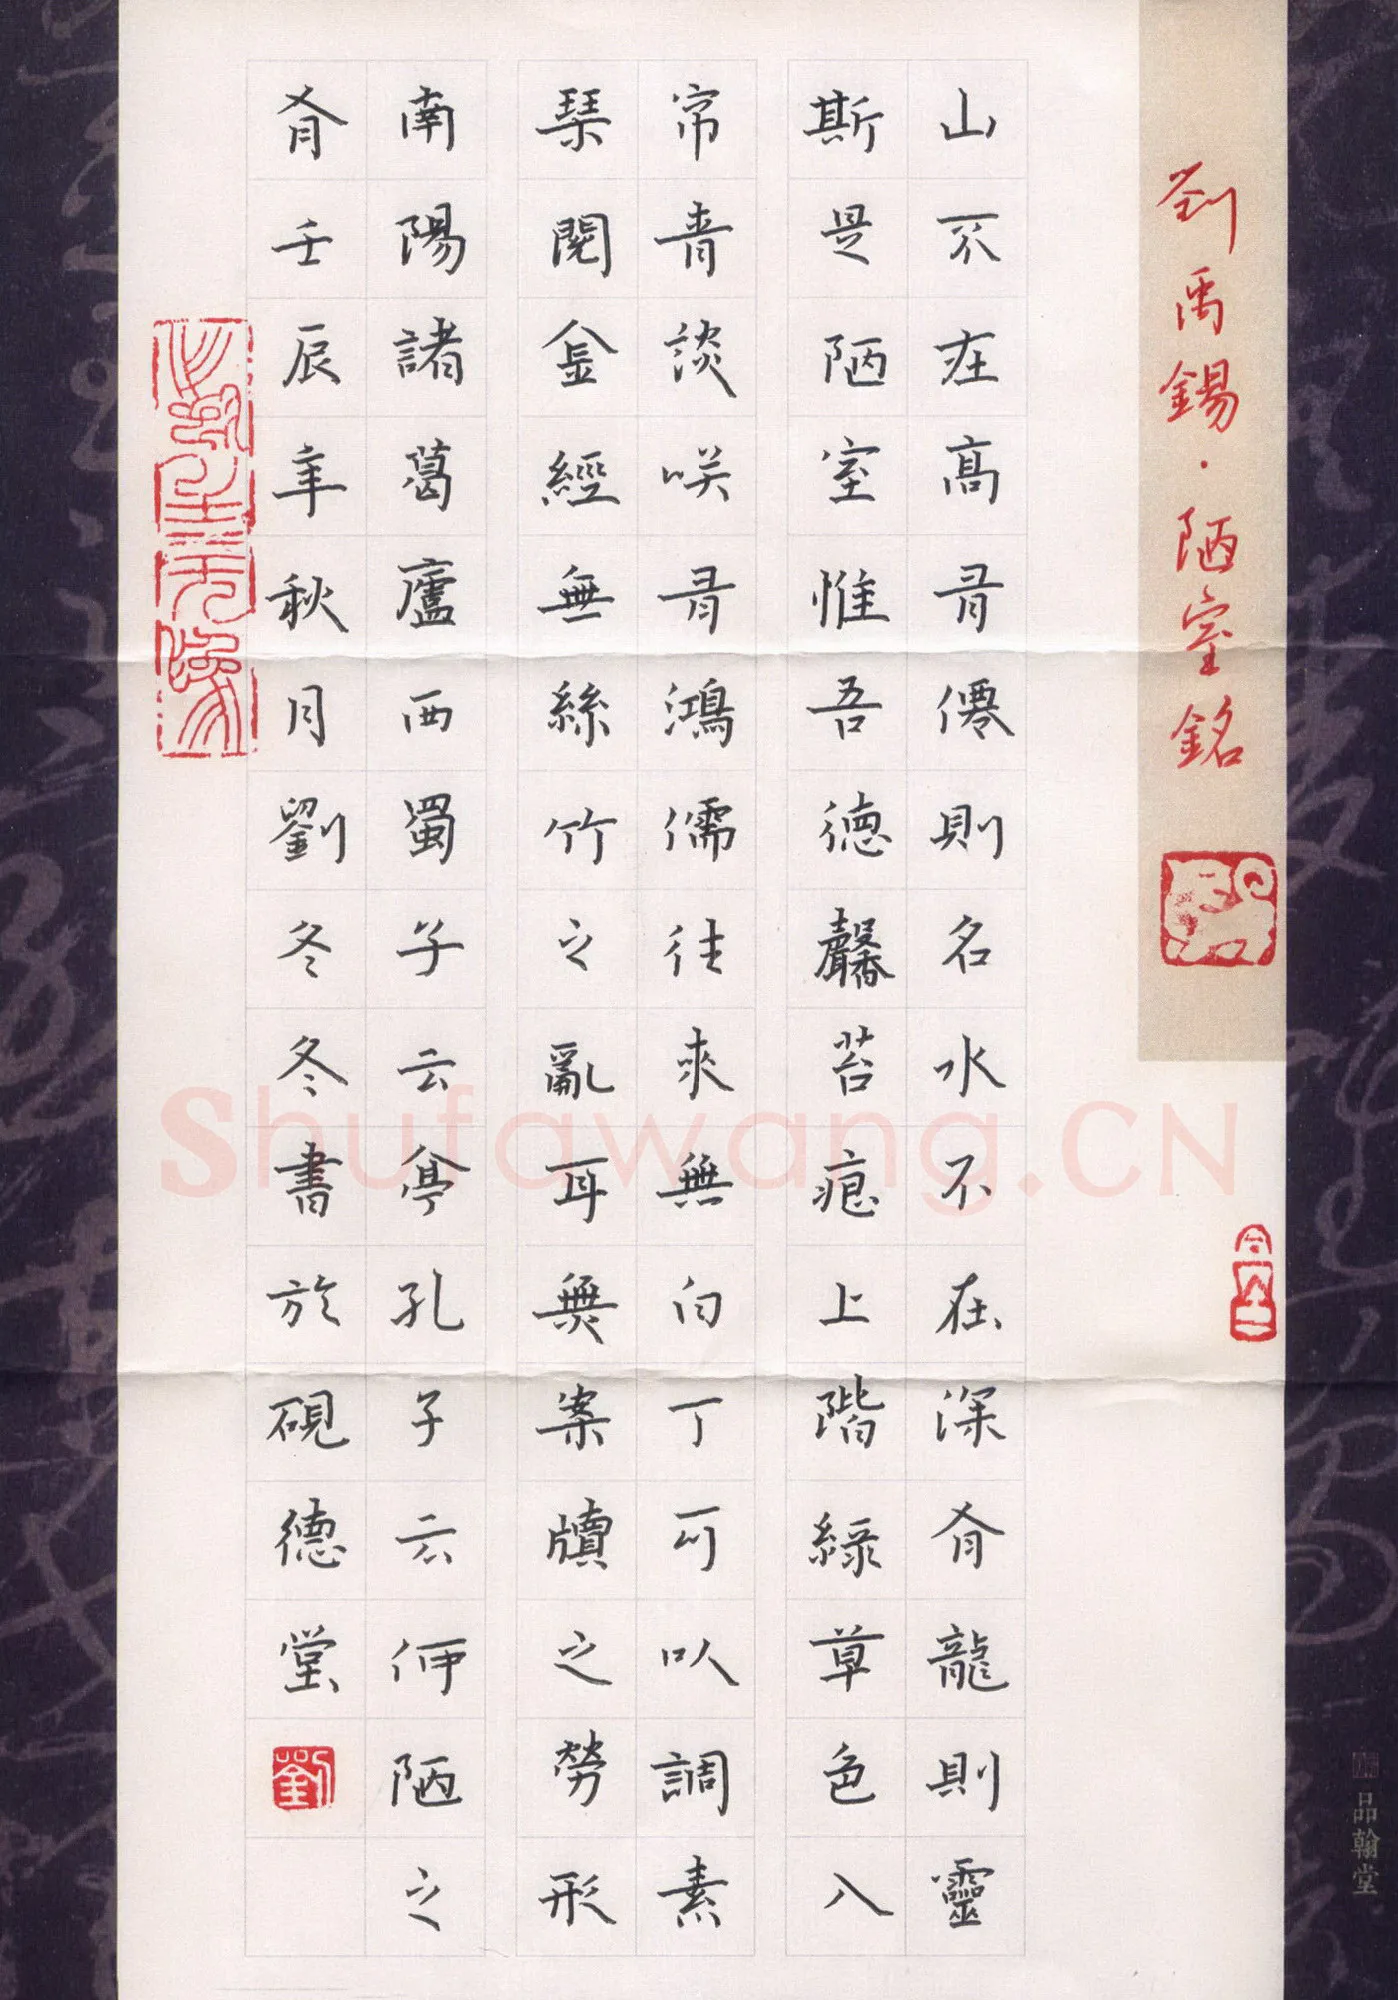 劉禹錫·陋室銘
山不在高有僊則名水不在深有龍則靈
斯是陋室惟吾德馨苔痕上階綠草色入
帘青談咲有鴻儒往來無白丁可以調素
琴閱金經無絲竹之亂耳無案牘之勞形
南陽諸葛廬西蜀子云亭孔子云何陋之
有壬辰年秋月劉冬冬書於硯德堂
劉
品翰堂
Shufawang.CN